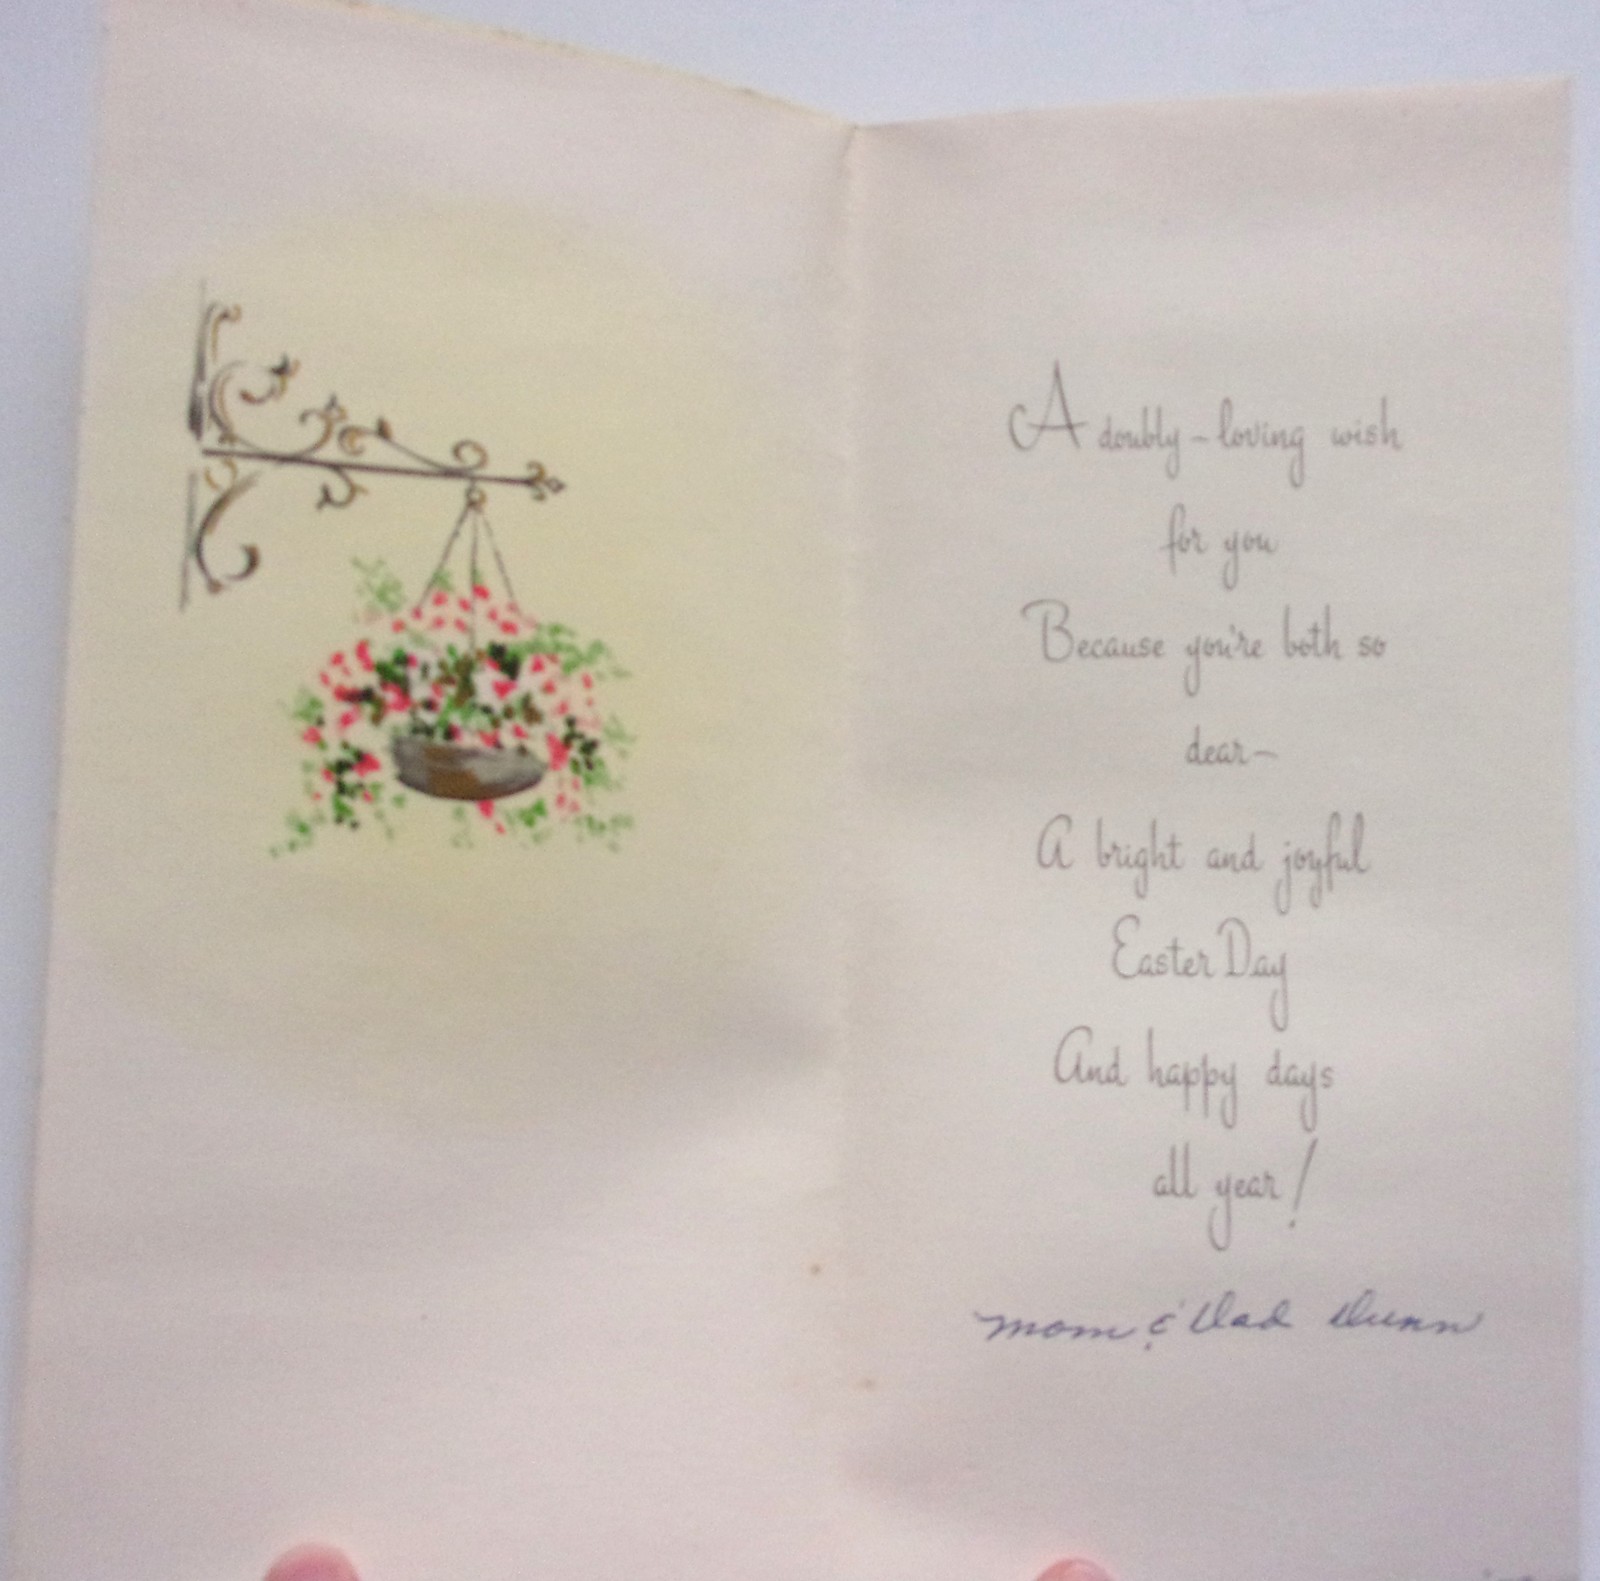 A doubly-loving wish
for you
Because you're both so
dear-
A bright and joyful
Easter Day
And happy days
all year!
Mom & Dad Dunn